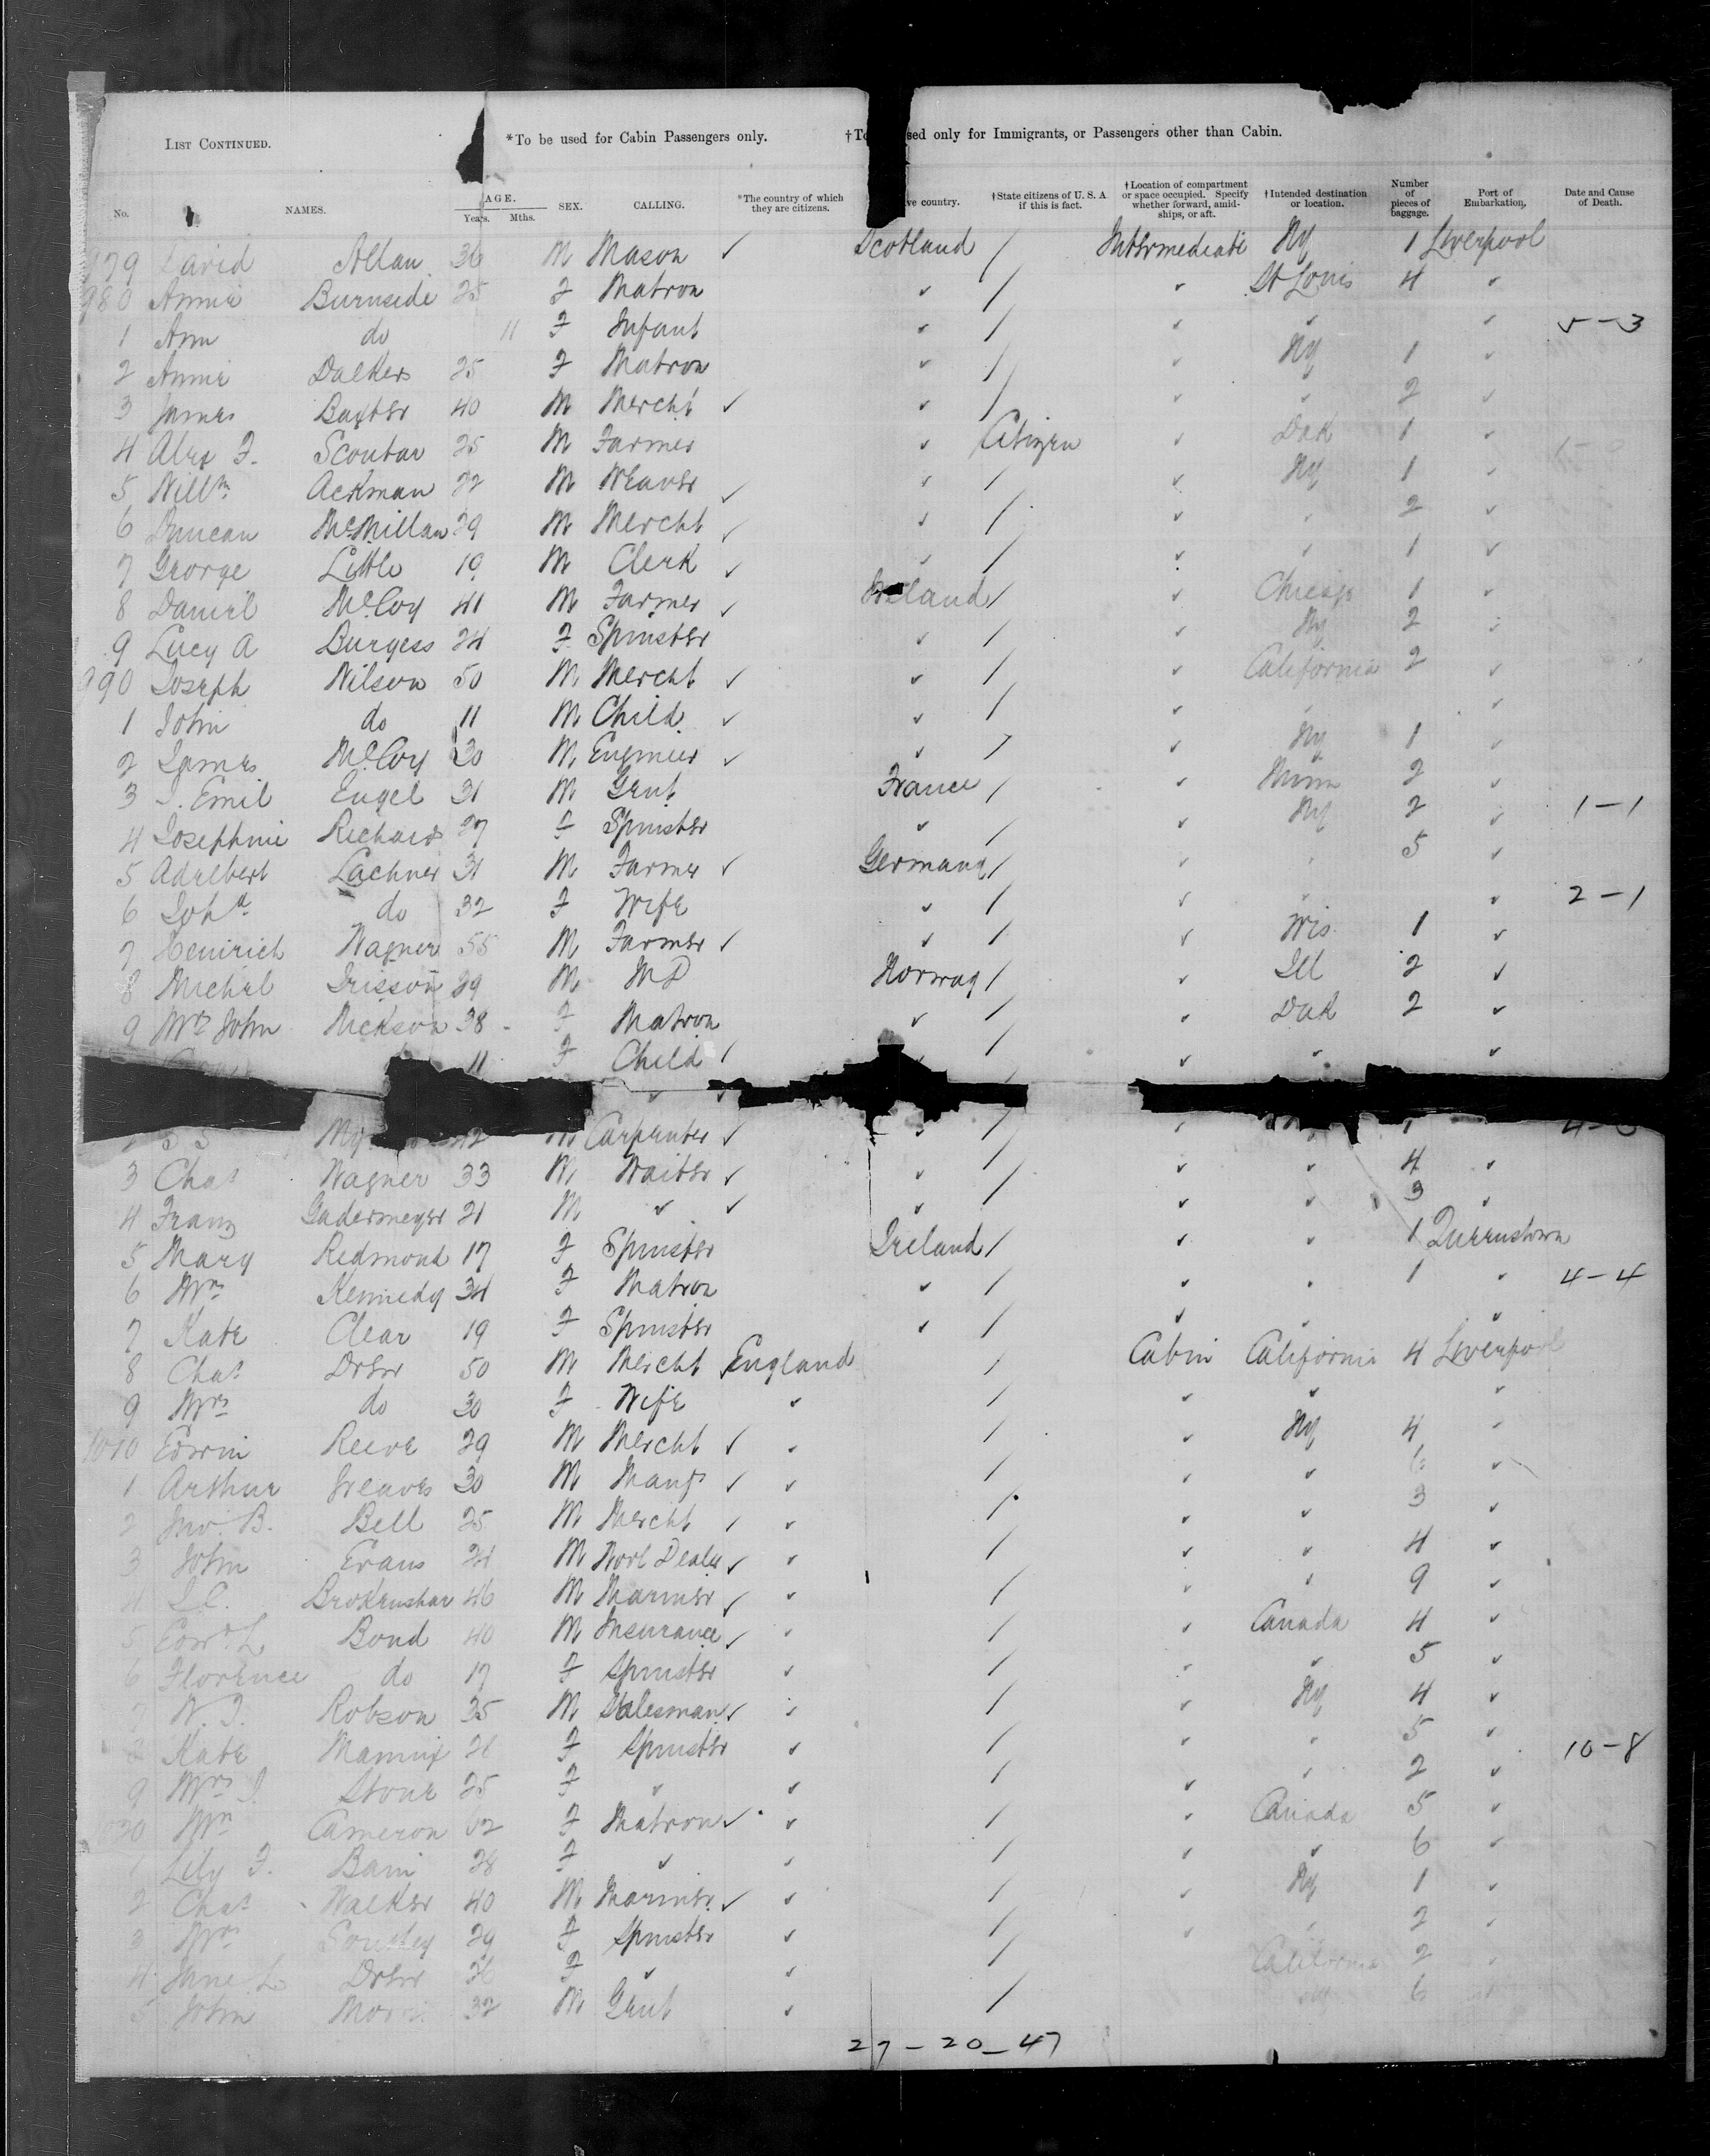 LIST CONTINUED. *To be used for Cabin Passengers only. †To sed only for Immigrants, or Passengers other than Cabin.
No. NAMES. AGE. Years. Mths. SEX. CALLING. *The country of which they are citizens. ve country. †State citizens of U. S. A if this is fact. †Location of compartment or space occupied. Specify whether forward, amidships, or aft. †Intended destination or location. Number of pieces of baggage. Port of Embarkation. Date and Cause of Death.
979 David Allan 36 M Mason ✓ Scotland / Intermediate Ny 1 Liverpool
980 Annie Burnside 25 F Matron ✓ / ✓ St Louis 4 ✓
1 Ann do 11 F Infant ✓ / ✓ ✓ ✓ 5-3
2 Annie 25 F Matron ✓ / ✓ Ny 1 ✓
3 James Baxter 40 M Mercht ✓ ✓ / ✓ ✓ 2 ✓
4 Alex F. Scoular 25 M Farmer ✓ Citizen ✓ Dak 1 ✓
5 Willm Ackman 22 M Weaver ✓ ✓ / ✓ Ny 1 ✓
6 Duncan McMillan 29 M Mercht ✓ ✓ / ✓ ✓ 2 ✓
7 George Little 19 M Clerk ✓ ✓ / ✓ ✓ 1 ✓
8 Daniel McCoy 41 M Farmer ✓ Ireland / ✓ Chicago 1 ✓
9 Lucy A Burgess 24 F Spinster ✓ / ✓ Ny 2 ✓
990 Joseph Wilson 50 M Mercht ✓ ✓ / ✓ California 2 ✓
1 John do 11 M Child ✓ ✓ / ✓ ✓ ✓
2 James McCoy 30 M Engineer ✓ ✓ / ✓ Ny 1 ✓
3 J. Emil Engel 31 M Gent France / ✓ Minn 2 ✓
4 Josephine Richards 27 F Spinster ✓ / ✓ Ny 2 ✓ 1-1
5 Adelbert Lachner 31 M Farmer ✓ Germany / ✓ ✓ 5 ✓
6 Joha do 32 F Wife ✓ / ✓ ✓ ✓ 2-1
7 Heinrich Wagner 55 M Farmer ✓ ✓ / ✓ Wis 1 ✓
8 Michel 29 M MD Norway / ✓ Ill 2 ✓
9 Mrs John Nickson 38 F Matron ✓ / ✓ Dak 2 ✓
11 F Child / ✓ / ✓ ✓ ✓
42 M Carpenter ✓ ✓ / ✓ 1
3 Chas Wagner 33 M Waiter ✓ ✓ / ✓ ✓ 4 ✓
4 Franz Gadermeyer 21 M ✓ ✓ ✓ / ✓ ✓ 3 ✓
5 Mary Redmond 17 F Spinster Ireland / ✓ ✓ 1 Queenstown
6 Mrs Kennedy 34 F Matron ✓ / ✓ ✓ 1 ✓ 4-4
7 Kate Clear 19 F Spinster ✓ / ✓ ✓ ✓
8 Chas Drew 50 M Mercht England / Cabin California 4 Liverpool
9 Mrs do 30 F Wife ✓ / ✓ ✓ ✓
1010 Edwin Reeve 29 M Mercht ✓ ✓ / ✓ Ny 4 ✓
1 Arthur Greaves 30 M Manfr ✓ ✓ / ✓ ✓ 6 ✓
2 Jno. B. Bell 25 M Mercht ✓ ✓ / ✓ ✓ 3 ✓
3 John Evans 24 M Wool Dealer ✓ ✓ / ✓ ✓ 4 ✓
4 Brokenshar 46 M Mariner ✓ ✓ / ✓ ✓ 9 ✓
5 Edwd L Bond 40 M Insurance ✓ ✓ / ✓ Canada 4 ✓
6 Florence do 17 F Spinster ✓ / ✓ ✓ 5 ✓
7 Robson 35 M Salesman ✓ ✓ / ✓ Ny 4 ✓
8 Kate Mannix 26 F Spinster ✓ / ✓ ✓ 5 ✓ 10-8
9 Mrs J. Stone 25 F ✓ ✓ / ✓ ✓ 2 ✓
020 Mrs Cameron 62 F Matron ✓ ✓ / ✓ Canada 5 ✓
1 Lily F. Bain 28 F ✓ ✓ / ✓ ✓ 6 ✓
2 Chas Walker 40 M Mariner ✓ ✓ / ✓ Ny 1 ✓
3 Mrs 29 F Spinster ✓ / ✓ ✓ 2 ✓
4 Jane L Drew 26 F ✓ ✓ / California 2
5 John 32 M Gent ✓ / 6
27-20-47